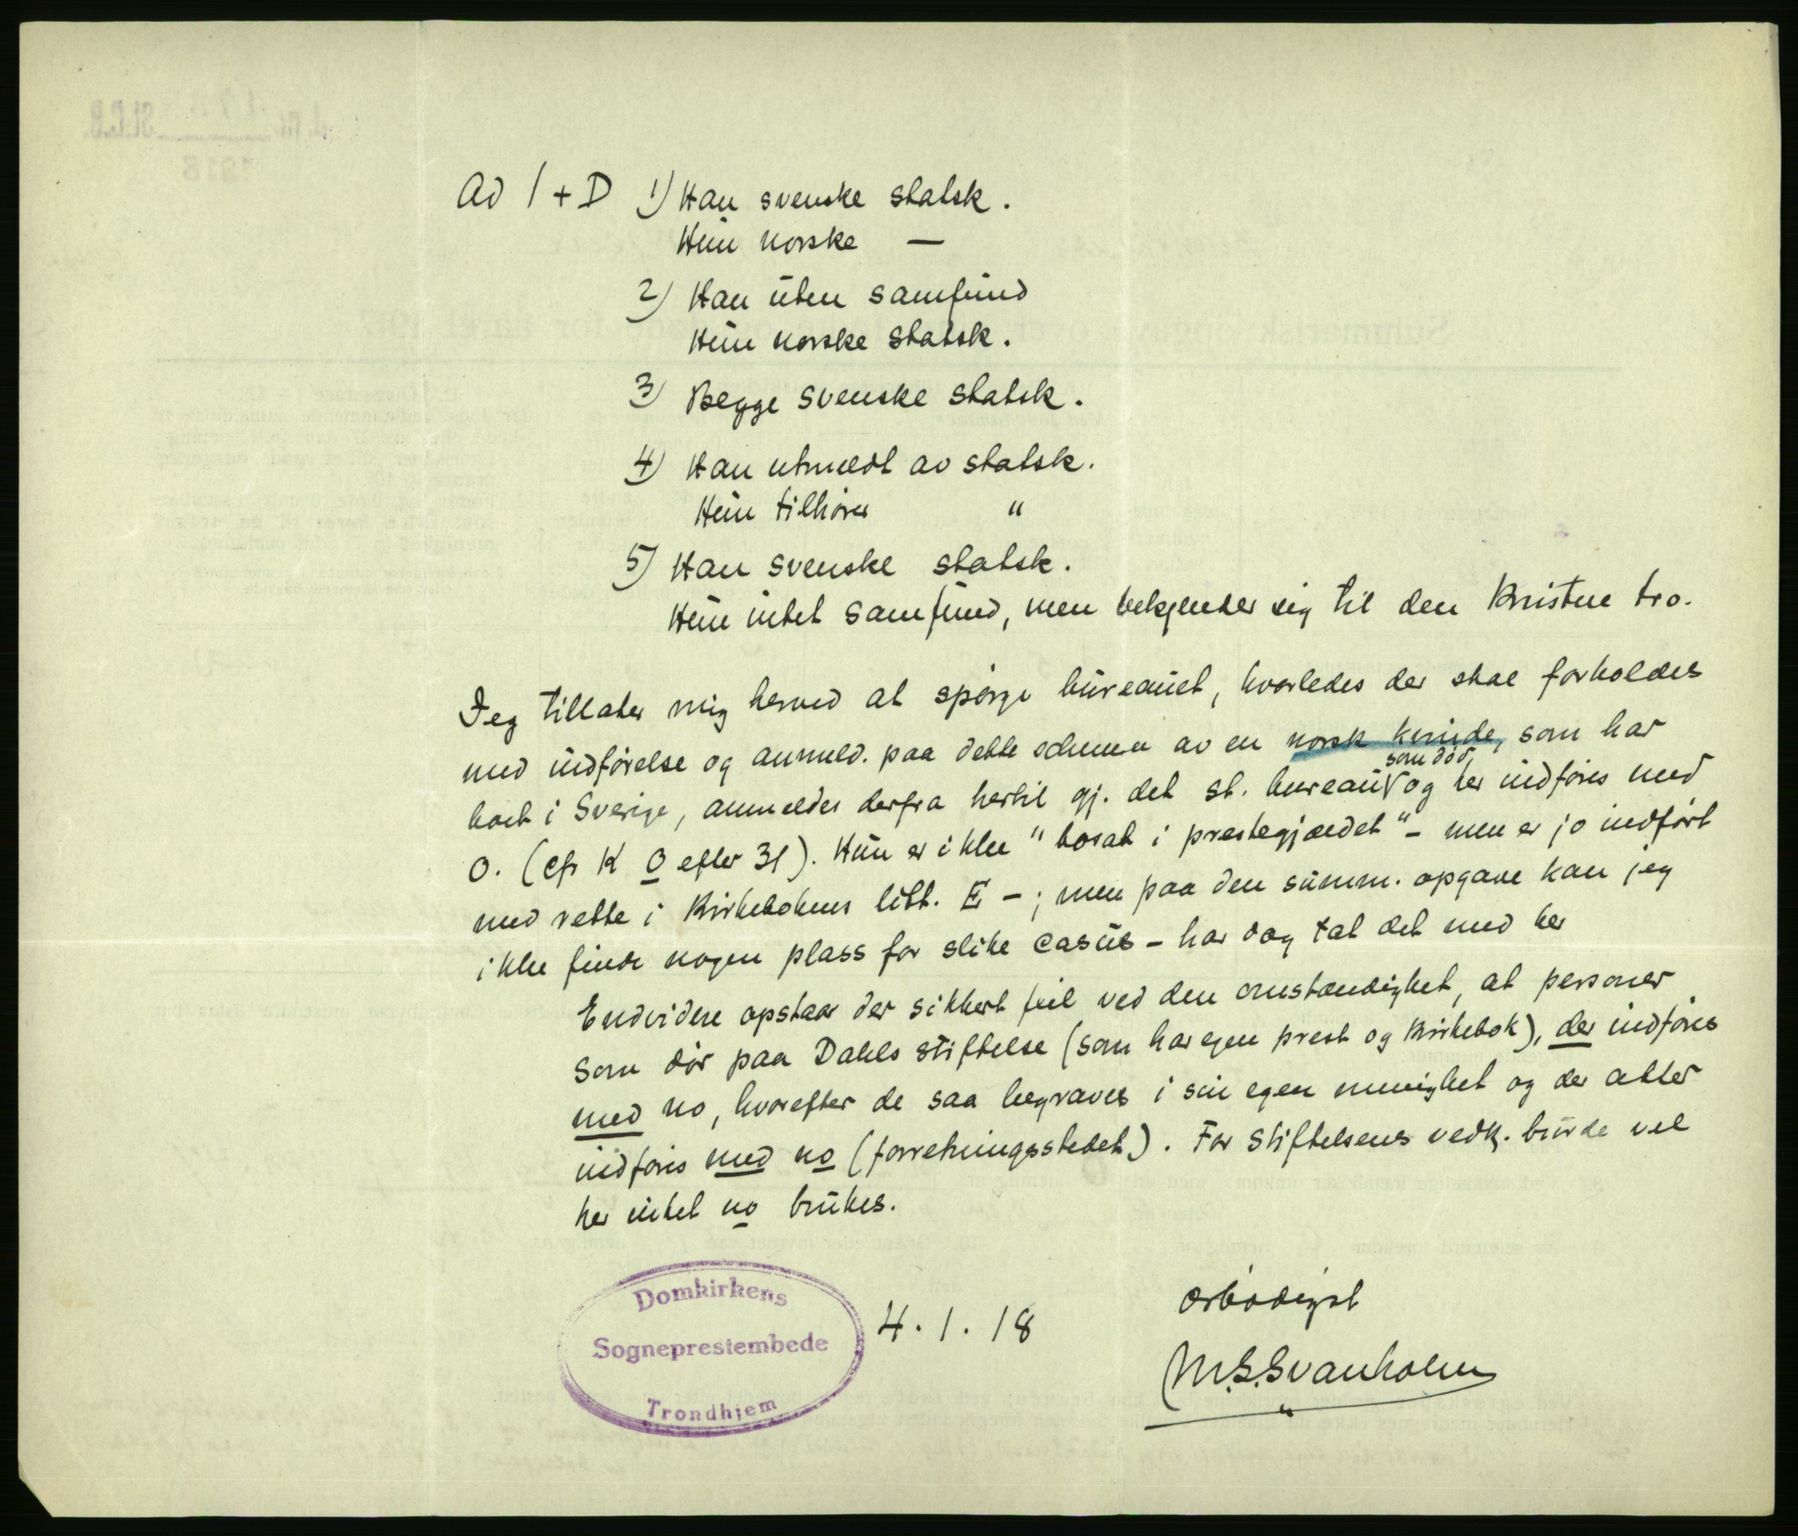 Ad 1 + D 1) Han svenske statsk.
Hun norske —
2) Han uten samfund
Hun norske statsk.
3) Begge svenske statsk.
4) Han utmeldt av statsk.
Hun tilhører "
5) Han svenske statsk.
Hun intet samfund, men bekjender sig til den kristne tro.
Jeg tillater mig herved at spørge bureauet, hvorledes der skal forholdes
med indførelse og anmeld. paa dette schema av en norsk kvinde, som har
boet i Sverige, anmeldes derfra hertil gj. det st. bureau som død, og her indføres med
0. (cfr K 0 efter 31). Hun er ikke "bosat i prestegjældet" – men er jo indført
med rette i kirkebokens litt. E – ; men paa den summ. opgave kan jeg
ikke finde nogen plass for slike casus – har dog tat det med her
Endvidere opstaar der sikkert feil ved den omstændighet, at personer
som dør paa Dahls stiftelse (som har egen prest og kirkebok), der indføres
med no, hvorefter de saa begraves i sin egen menighet og der atter
indføres med no (forretningsstedet). For stiftelsens vedk. burde vel
her intet no brukes.
ærbødigst
4.1.18
M.S.Svanholm
Domkirkens
Sogneprestembede
Trondhjem
J. nr. St.C.B.
1918